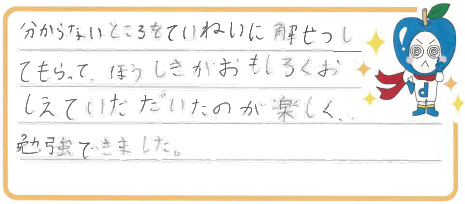 分からないところをていねいに解せつし
てもらって、ほうしきがおもしろくお
しえていただいたのが楽しく、
勉強できました。